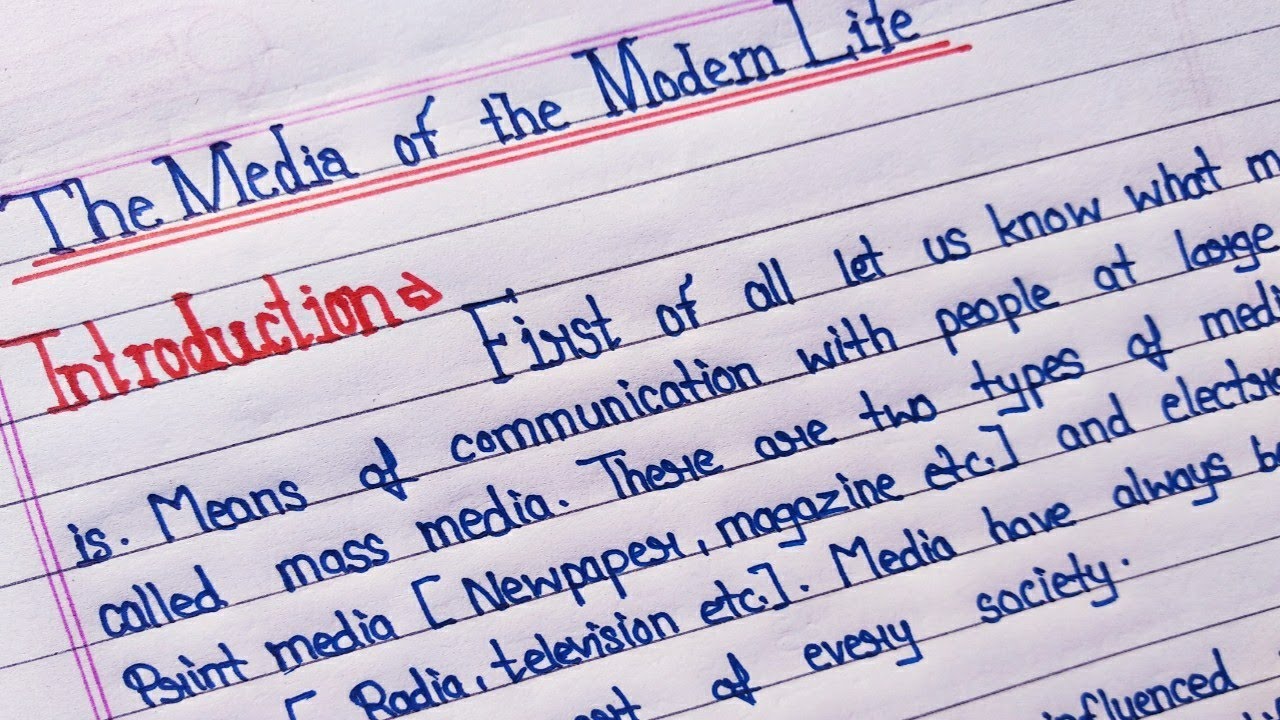 The Media of the Modern Life
Introduction⇒ First of all let us know what m
is. Means of communication with people at large
called mass media. There are two types of medi
Print media [Newpaper, magazine etc.] and electr
[Radia, television etc.]. Media have always b
of every society.
influenced